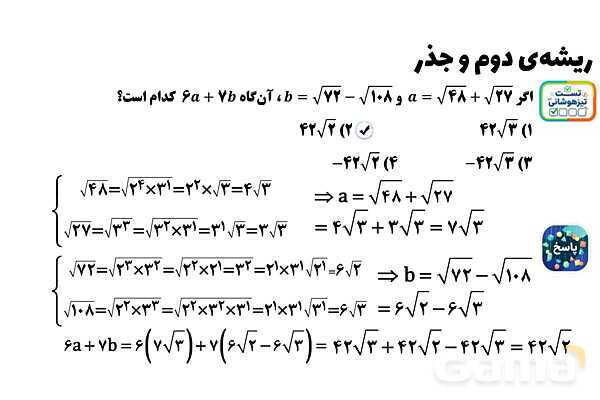 ریشه‌ی دوم و جذر
تست تیزهوشانی
اگر a = √۴۸ + √۲۷ و b = √۷۲ − √۱۰۸ ، آن‌گاه ۶a + ۷b کدام است؟
۱) ۴۲√۳ ۲) ۴۲√۲
۳) −۴۲√۳ ۴) −۴۲√۲
پاسخ
√۴۸=√۲^۴×۳^۱=۲^۲×√۳=۴√۳ ⇒ a = √۴۸ + √۲۷
√۲۷=√۳^۳=√۳^۲×۳^۱=۳^۱√۳=۳√۳ = ۴√۳ + ۳√۳ = ۷√۳
√۷۲=√۲^۳×۳^۲=√۲^۲×۲^۱=۳^۲=۲^۱×۳^۱√۲^۱=۶√۲ ⇒ b = √۷۲ − √۱۰۸
√۱۰۸=√۲^۲×۳^۳=√۲^۲×۳^۲×۳^۱=۲^۱×۳^۱√۳^۱=۶√۳ = ۶√۲ − ۶√۳
۶a + ۷b = ۶(۷√۳) + ۷(۶√۲ − ۶√۳) = ۴۲√۳ + ۴۲√۲ − ۴۲√۳ = ۴۲√۲
Gama